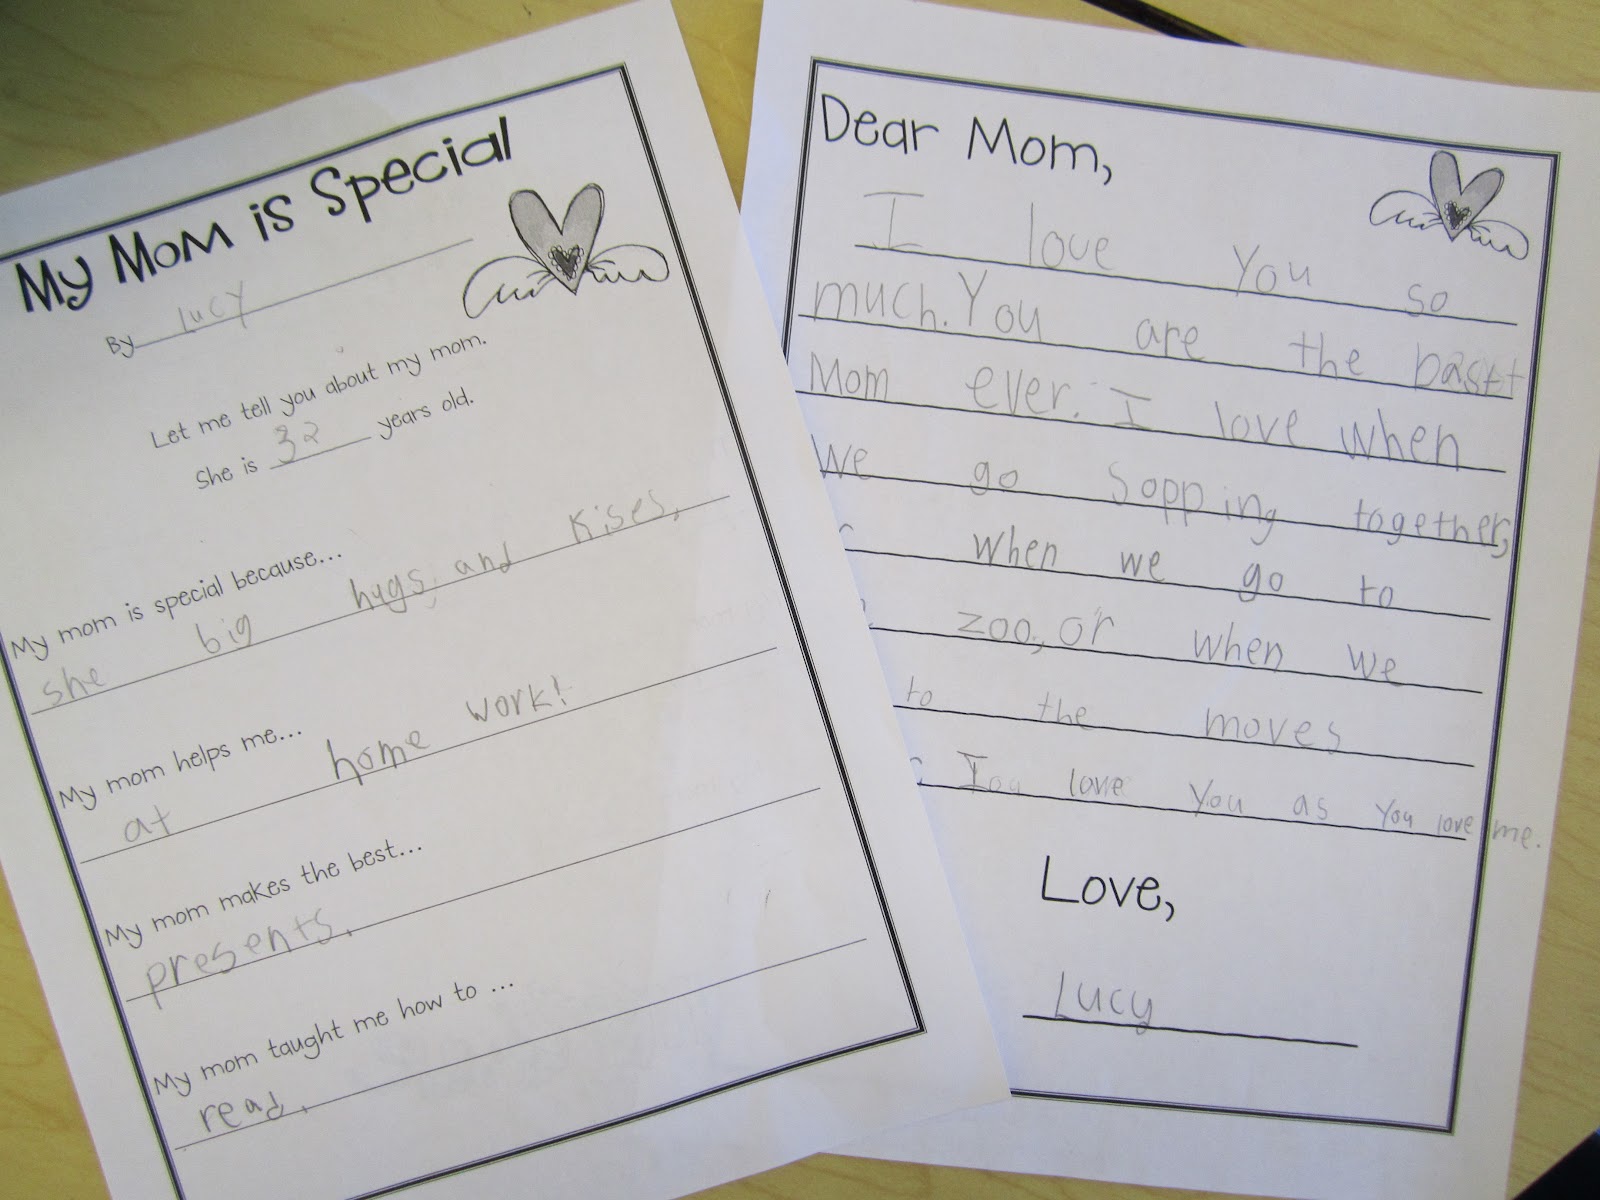 My Mom is Special
By Lucy
Let me tell you about my mom.
She is 32 years old.
My mom is special because...
she big hugs, and Kises,
My mom helps me...
at home work!
My mom makes the best...
presents.
My mom taught me how to ...
read.
Dear Mom,
I love You so
much. You are the bastt
Mom ever. I love when
We go Sopping together,
when we go to
zoo, or when we
to the moves
love You as You love me.
Love,
Lucy